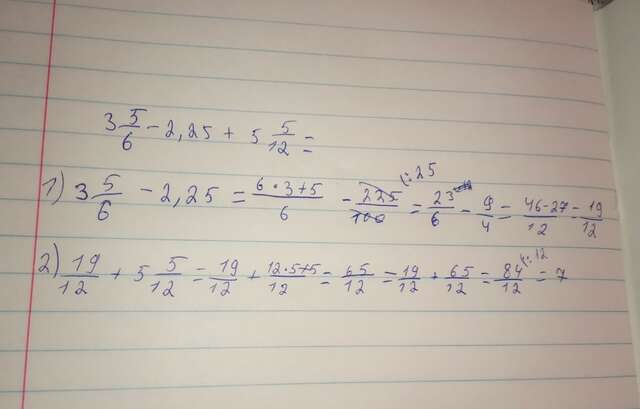 3 5/6 - 2,25 + 5 5/12 =
1) 3 5/6 - 2,25 = (6·3+5)/6 - 225/100 (:25 = 23/6 - 9/4 = (46-27)/12 = 19/12
2) 19/12 + 5 5/12 = 19/12 + (12·5+5)/12 = 65/12 = 19/12 + 65/12 = 84/12 (:12 = 7